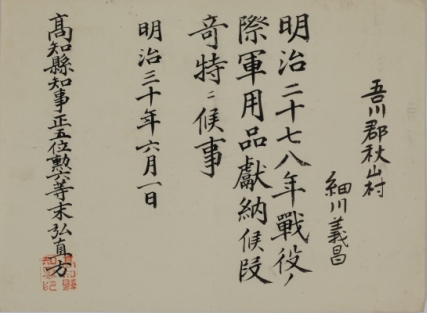 吾川郡秋山村
細川義昌
明治二十七八年戰役ノ
際軍用品獻納候段
奇特ニ候事
明治三十年六月一日
高知縣知事正五位勲六等末弘直方